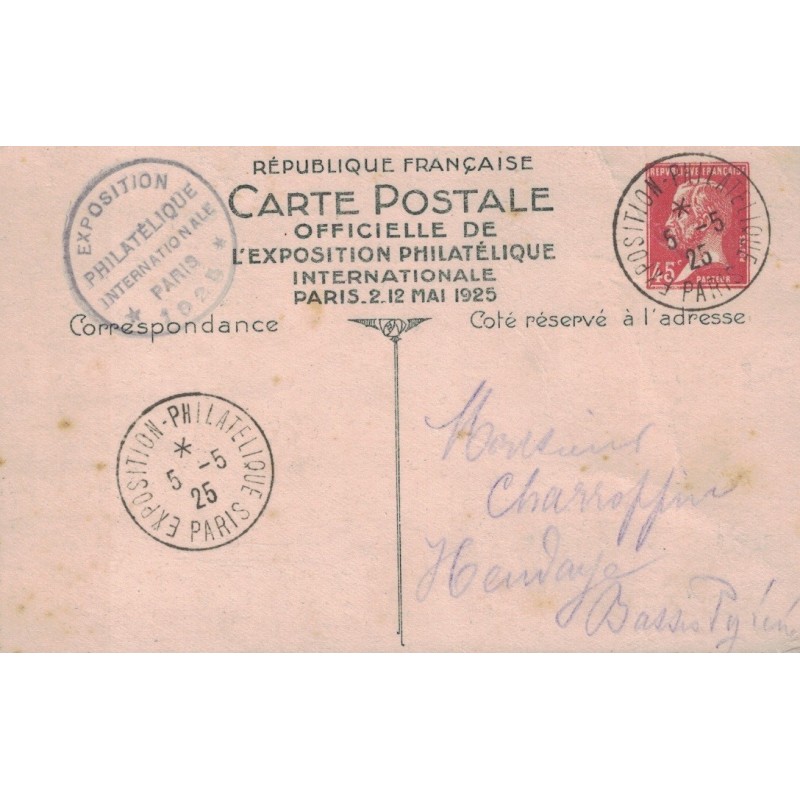 RÉPUBLIQUE FRANÇAISE
CARTE POSTALE
OFFICIELLE DE
L'EXPOSITION PHILATÉLIQUE
INTERNATIONALE
PARIS.2.12 MAI 1925
EXPOSITION
PHILATÉLIQUE
INTERNATIONALE
PARIS
* 1925 *
REPUBLIQUE FRANÇAISE
45c
PASTEUR
EXPOSITION-PHILATELIQUE
*
5 -5
25
PARIS
Correspondance
Coté réservé à l'adresse
EXPOSITION-PHILATELIQUE
*
5 -5
25
PARIS
Monsieur
Hendaye
Basses Pyréné